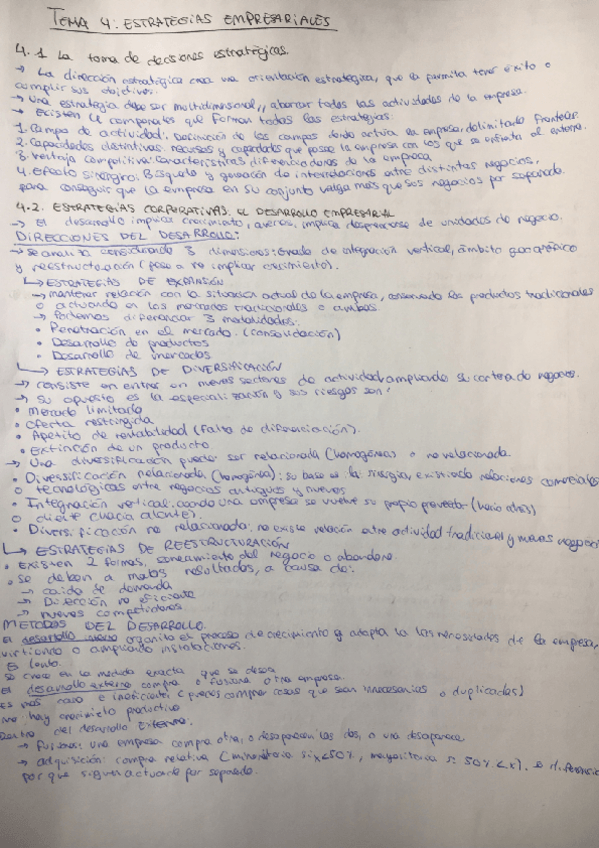 TEMA 4: ESTRATEGIAS EMPRESARIALES
4.1 La toma de decisiones estratégicas.
→ La dirección estratégica crea una orientación estratégica, que la permita tener éxito o
cumplir sus objetivos.
→ Una estrategia debe ser multidimensional, abarcar todas las actividades de la empresa.
→ Existen 4 componentes que forman todas las estrategias:
1. Campo de actividad: Definición de los campos donde actúa la empresa, delimitado fronteras.
2. Capacidades distintivas: recursos y capacidades que posee la empresa con los que se enfrenta al entorno.
3. Ventaja competitiva: características diferenciadoras de la empresa
4. Efecto sinérgico: Búsqueda y generación de interrelaciones entre distintos negocios,
para conseguir que la empresa en su conjunto valga más que sus negocios por separado.
4.2. ESTRATEGIAS CORPORATIVAS: EL DESARROLLO EMPRESARIAL
→ El desarrollo implica crecimiento, a veces, implica desprenderse de unidades de negocio.
DIRECCIONES DEL DESARROLLO:
→ Se analiza considerando 3 dimensiones: Grado de integración vertical, ámbito geográfico
y reestructuración (pese a no implicar crecimiento).
↳ ESTRATEGIAS DE EXPANSIÓN
→ mantener relación con la situación actual de la empresa, conservando los productos tradicionales
o actuando en los mercados tradicionales o ambos.
→ Podemos diferenciar 3 modalidades:
• Penetración en el mercado. (consolidación)
• Desarrollo de productos
• Desarrollo de mercados
↳ ESTRATEGIAS DE DIVERSIFICACIÓN
→ consiste en entrar en nuevos sectores de actividad, ampliando su cartera de negocios.
→ su opuesto es la especialización y sus riesgos son:
• Mercado limitado
• Oferta restringida
• Apetito de rentabilidad (falta de diferenciación).
• Extinción de un producto
→ Una diversificación puede ser relacionada (homogénea) o no relacionada.
• Diversificación relacionada (homogénea): su base es la sinergia, existiendo relaciones comerciales
o tecnológicas entre negocios antiguos y nuevos
• Integración vertical, cuando una empresa se vuelve su propio proveedor (hacia atrás)
o cliente (hacia delante).
• Diversificación no relacionada: no existe relación entre actividad tradicional y nuevos negocios
↳ ESTRATEGIAS DE REESTRUCTURACIÓN
• Existen 2 formas, saneamiento del negocio o abandono
• Se deben a malos resultados, a causa de:
→ caída de demanda
→ Dirección no eficiente
→ nuevos competidores.
METODOS DEL DESARROLLO.
El desarrollo interno organiza el proceso de crecimiento y adapta la las necesidades de la empresa,
o ampliando instalaciones.
Es lento.
se crece en la medida exacta que se desea
El desarrollo externo compra o fusiona otra empresa.
Es más caro e ineficiente (puedes comprar cosas que sean innecesarias o duplicadas)
no hay crecimiento productivo
Dentro del desarrollo Externo:
→ fusiones: una empresa compra otra, o desaparecen las dos, o una desaparece
→ adquisición: compra relativa (minoritaria si x<50%, mayoritaria si 50% < x), se diferencia
por que siguen actuando por separado.